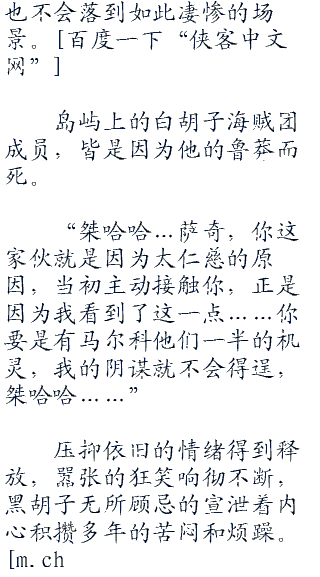 也不会落到如此凄惨的场
景。[百度一下“侠客中文
网”]
岛屿上的白胡子海贼团
成员，皆是因为他的鲁莽而
死。
“桀哈哈…萨奇，你这
家伙就是因为太仁慈的原
因，当初主动接触你，正是
因为我看到了这一点……你
要是有马尔科他们一半的机
灵，我的阴谋就不会得逞，
桀哈哈……”
压抑依旧的情绪得到释
放，嚣张的狂笑响彻不断，
黑胡子无所顾忌的宣泄着内
心积攒多年的苦闷和烦躁。
[m.ch